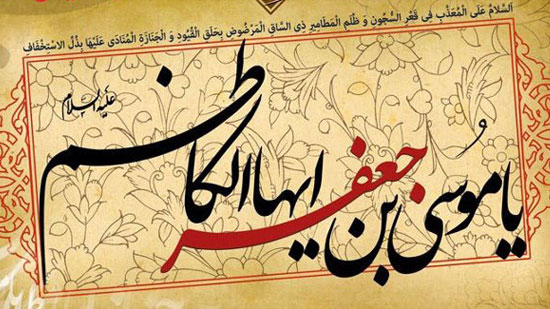 اَلسَّلامُ عَلَى الْمُعَذَّبِ فِی قَعْرِ السُّجُونِ وَ ظُلَمِ الْمَطَامِیرِ ذِی السَّاقِ الْمَرْضُوضِ بِحَلَقِ الْقُیُودِ وَ الْجَنَازَةِ الْمُنَادَى عَلَیْهَا بِذُلِّ الاِسْتِخْفَافِ
یا مُوسی بن جعفر ایها الکاظم
علیه السلام